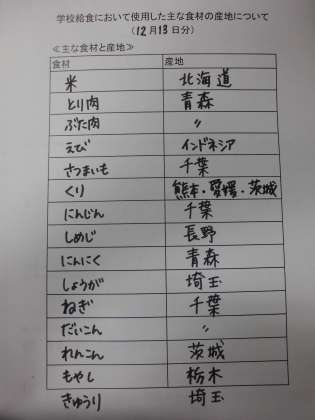 学校給食において使用した主な食材の産地について
(12月13日分)
≪主な食材と産地≫
食材 産地
米 北海道
とり肉 青森
ぶた肉 〃
えび インドネシア
さつまいも 千葉
くり 熊本・愛媛・茨城
にんじん 千葉
しめじ 長野
にんにく 青森
しょうが 埼玉
ねぎ 千葉
だいこん 〃
れんこん 茨城
もやし 栃木
きゅうり 埼玉